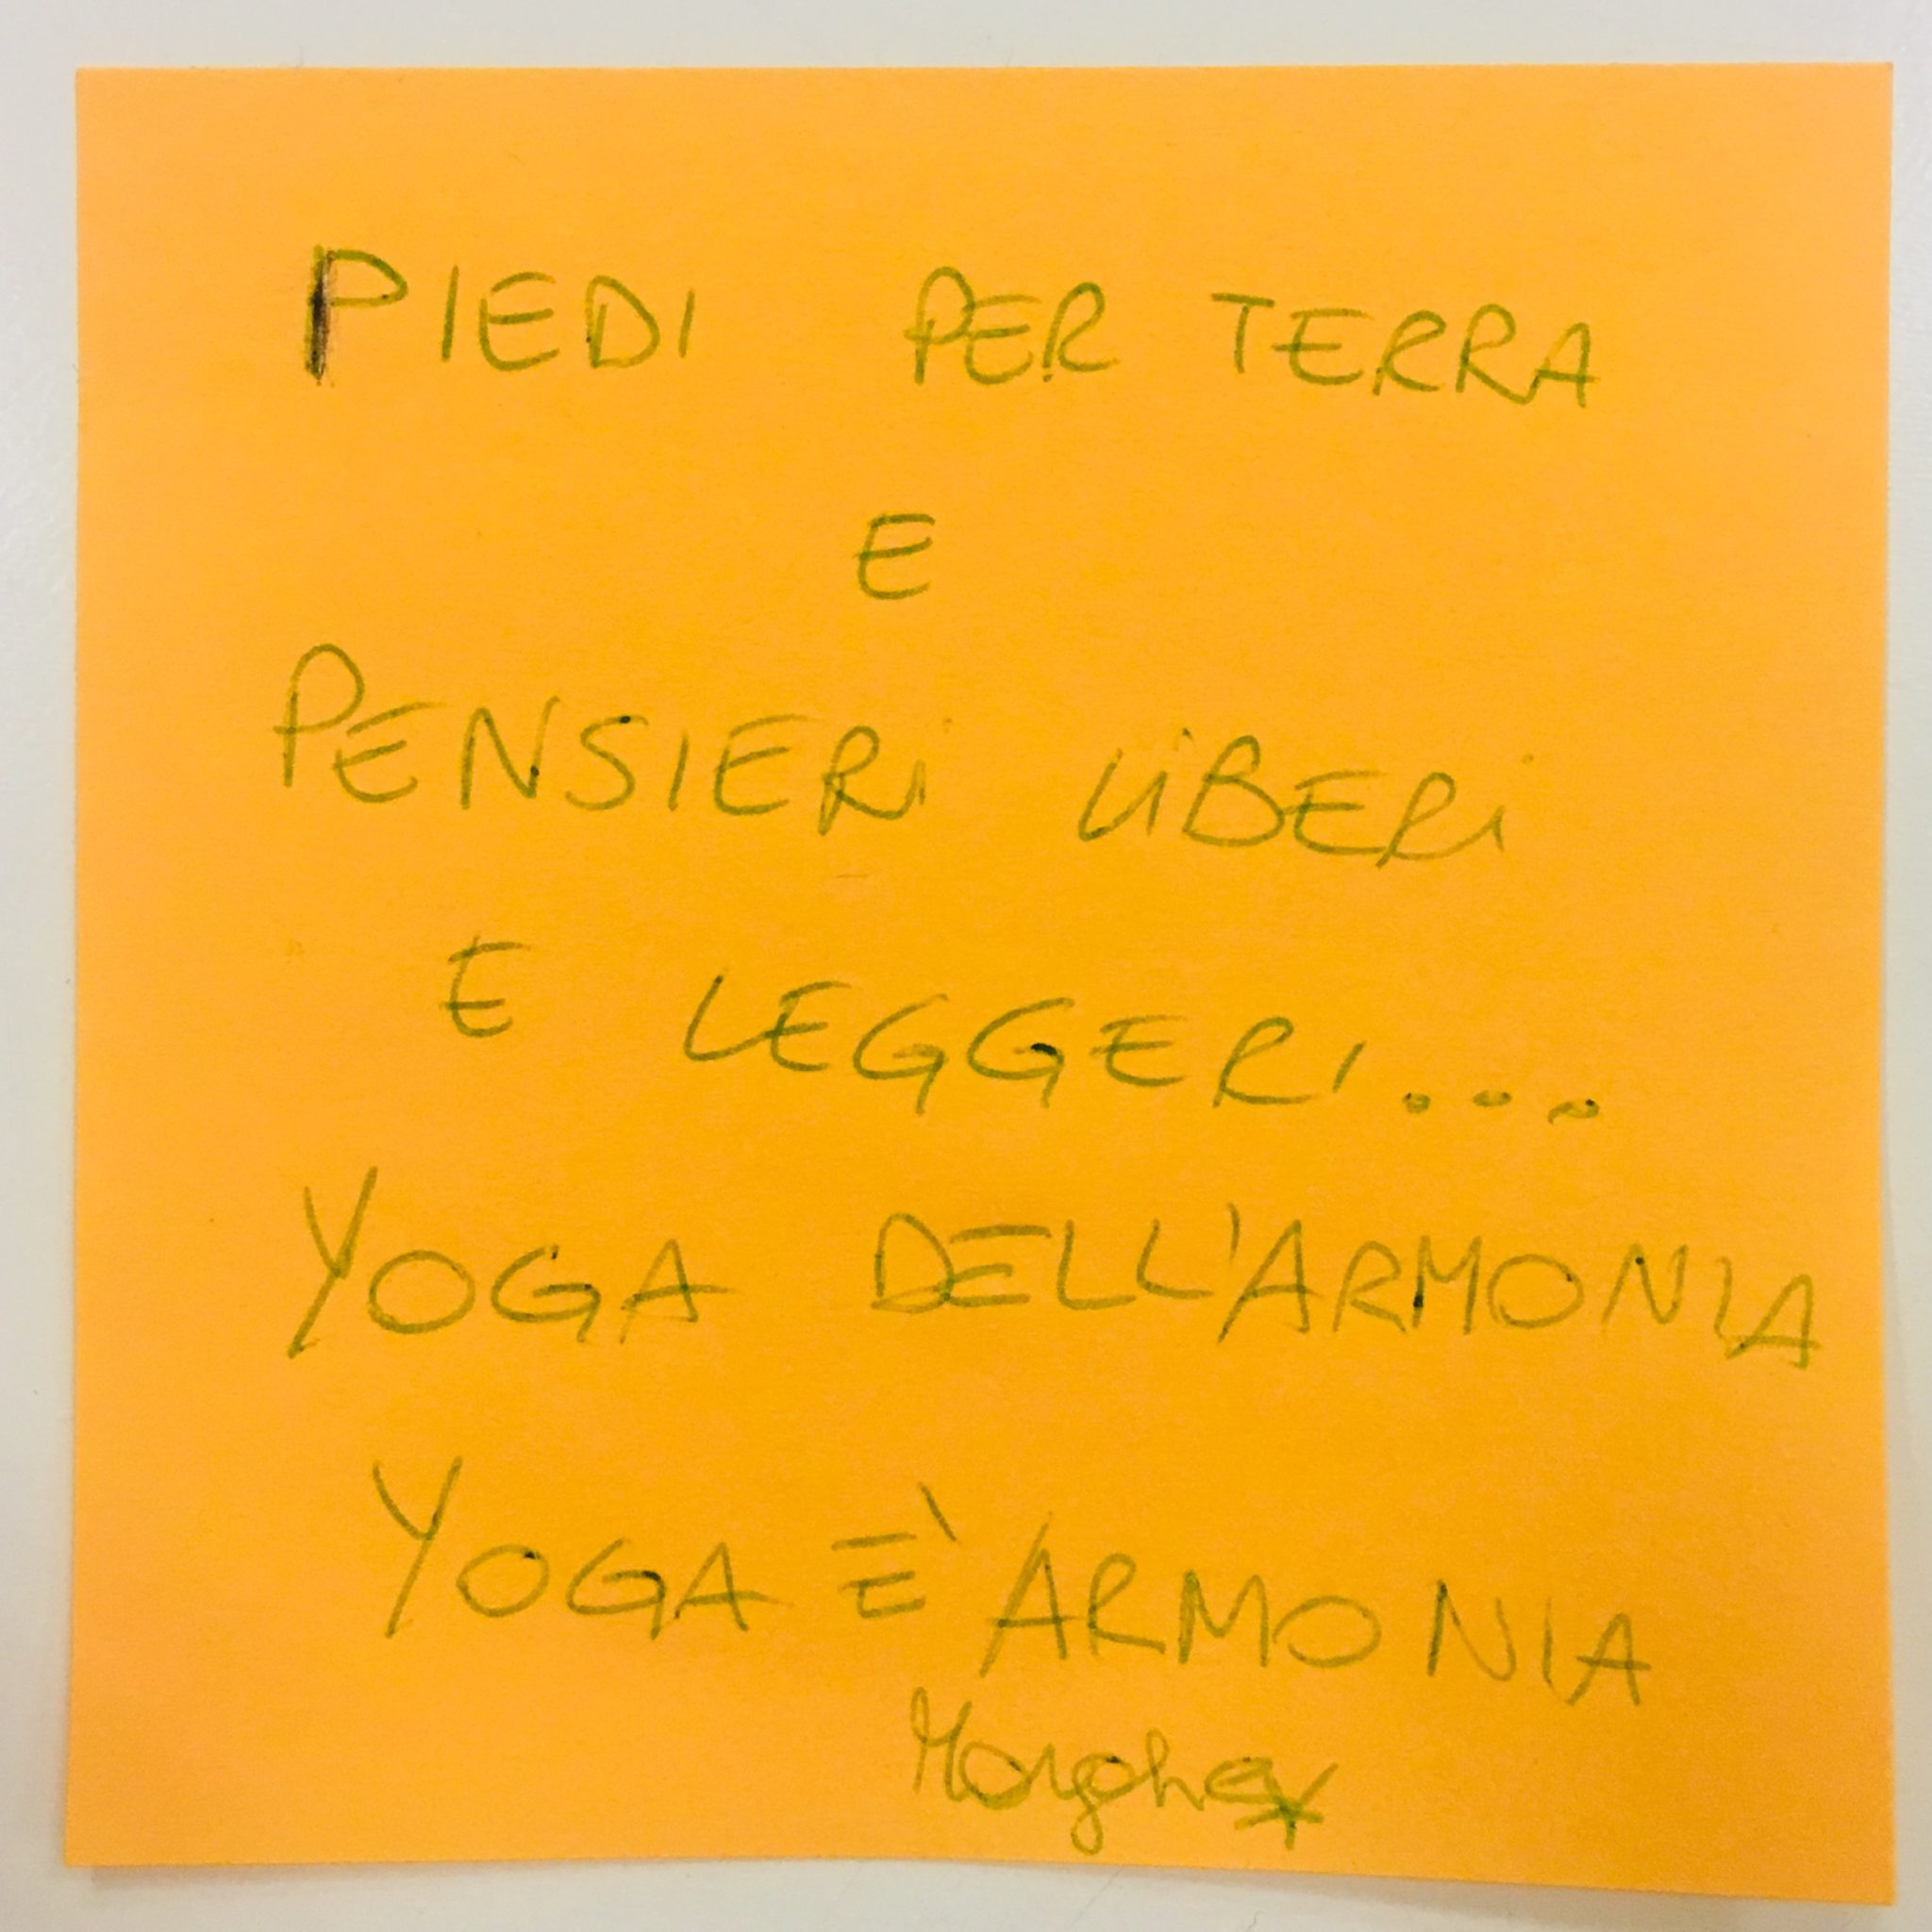 PIEDI PER TERRA
E
PENSIERI LIBERI
E LEGGERI...
YOGA DELL'ARMONIA
YOGA È ARMONIA